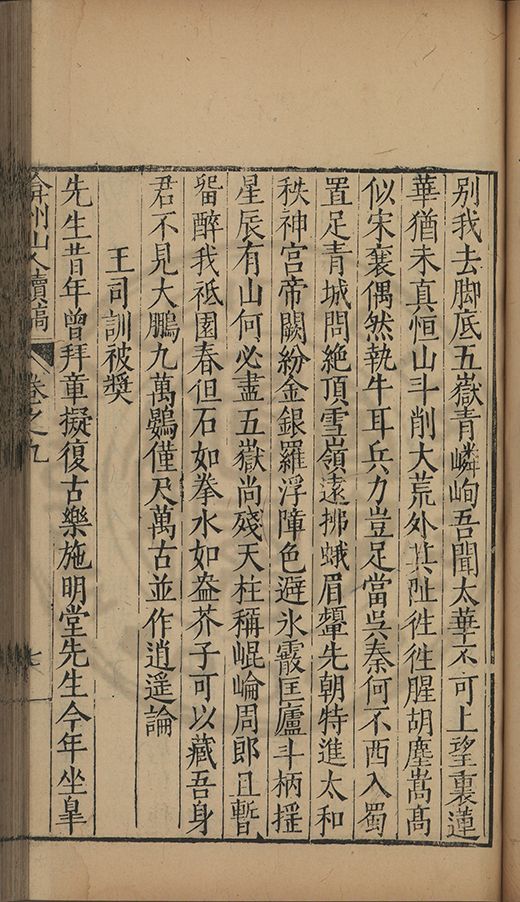 別我去脚底五嶽青嶙峋吾聞太華不可上望裏蓮
華猶未真恒山斗削大荒外其阯徃徃腥胡塵嵩高
似宋襄偶然執牛耳兵力豈足當吳秦何不西入蜀
置足青城問絶頂雪嶺遠拂蛾眉顰先朝特進太和
秩神宫帝闕紛金銀羅浮障色避氷霰匡廬斗柄揺
星辰有山何必盡五嶽尚殘天柱稱崐崘周郎且暫
留醉我祇園春但石如拳水如盎芥子可以藏吾身
君不見大鵬九萬鷃僅尺萬古並作逍遥論
王司訓被奬
先生昔年曾拜章擬復古樂施明堂先生今年坐臯
弇州山人續稿
卷之九
七